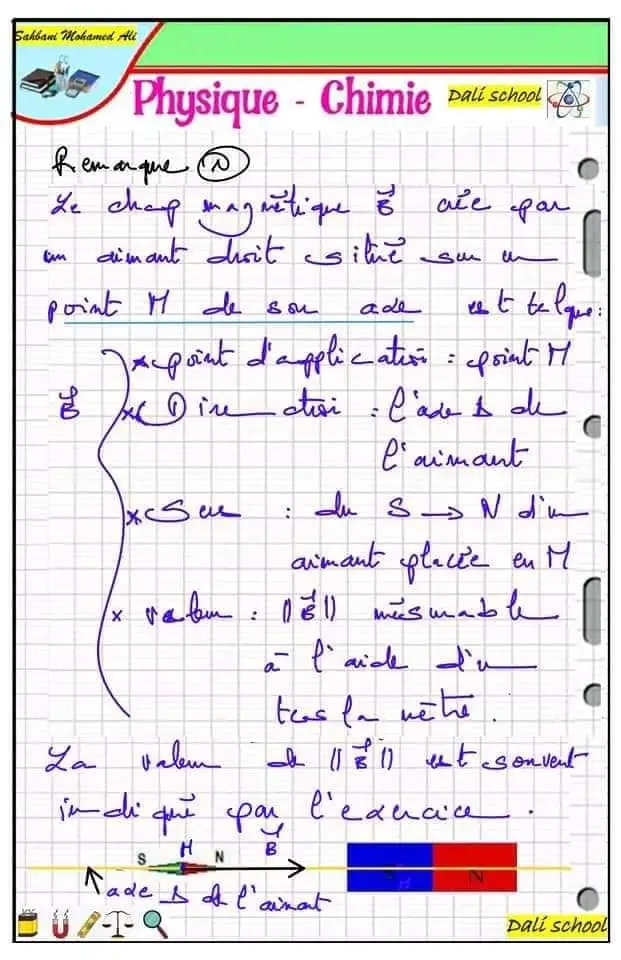 Sahbani Mohamed Ali
Physique - Chimie Dali school
Remarque 1
Le champ magnétique B créé par
un aimant droit situé sur un
point M de son axe est telque:
* point d'application : point M
B * Direction : l'axe Δ de
l'aimant
* Sens : du S → N d'un
aimant placée en M
* valeur : ||B|| mésurable
à l'aide d'un
teslamètre.
La valeur de ||B|| est souvent
indiqué par l'exercice.
S M N B
S N
axe Δ de l'aimant
Dali school